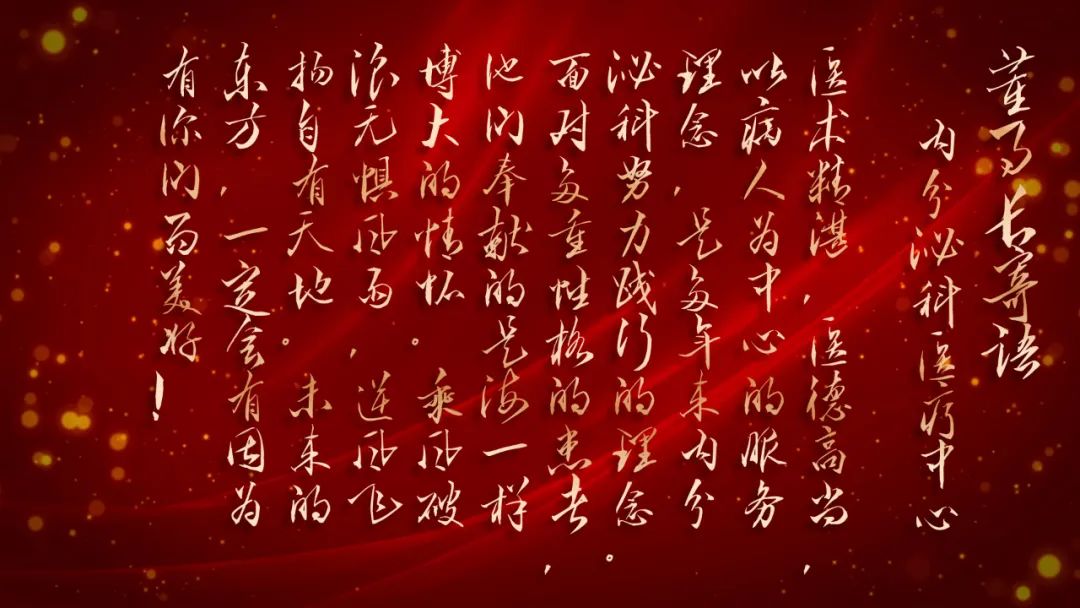 董事长寄语
内分泌科医疗中心
医术精湛，医德高尚，
以病人为中心的服务
理念，是多年来内分
泌科努力践行的理念。
面对多重性格的患者，
他们奉献的是海一样
博大的情怀。乘风破
浪无惧风雨，逆风飞
扬自有天地。未来的
东方，一定会有因为
有你们而美好！